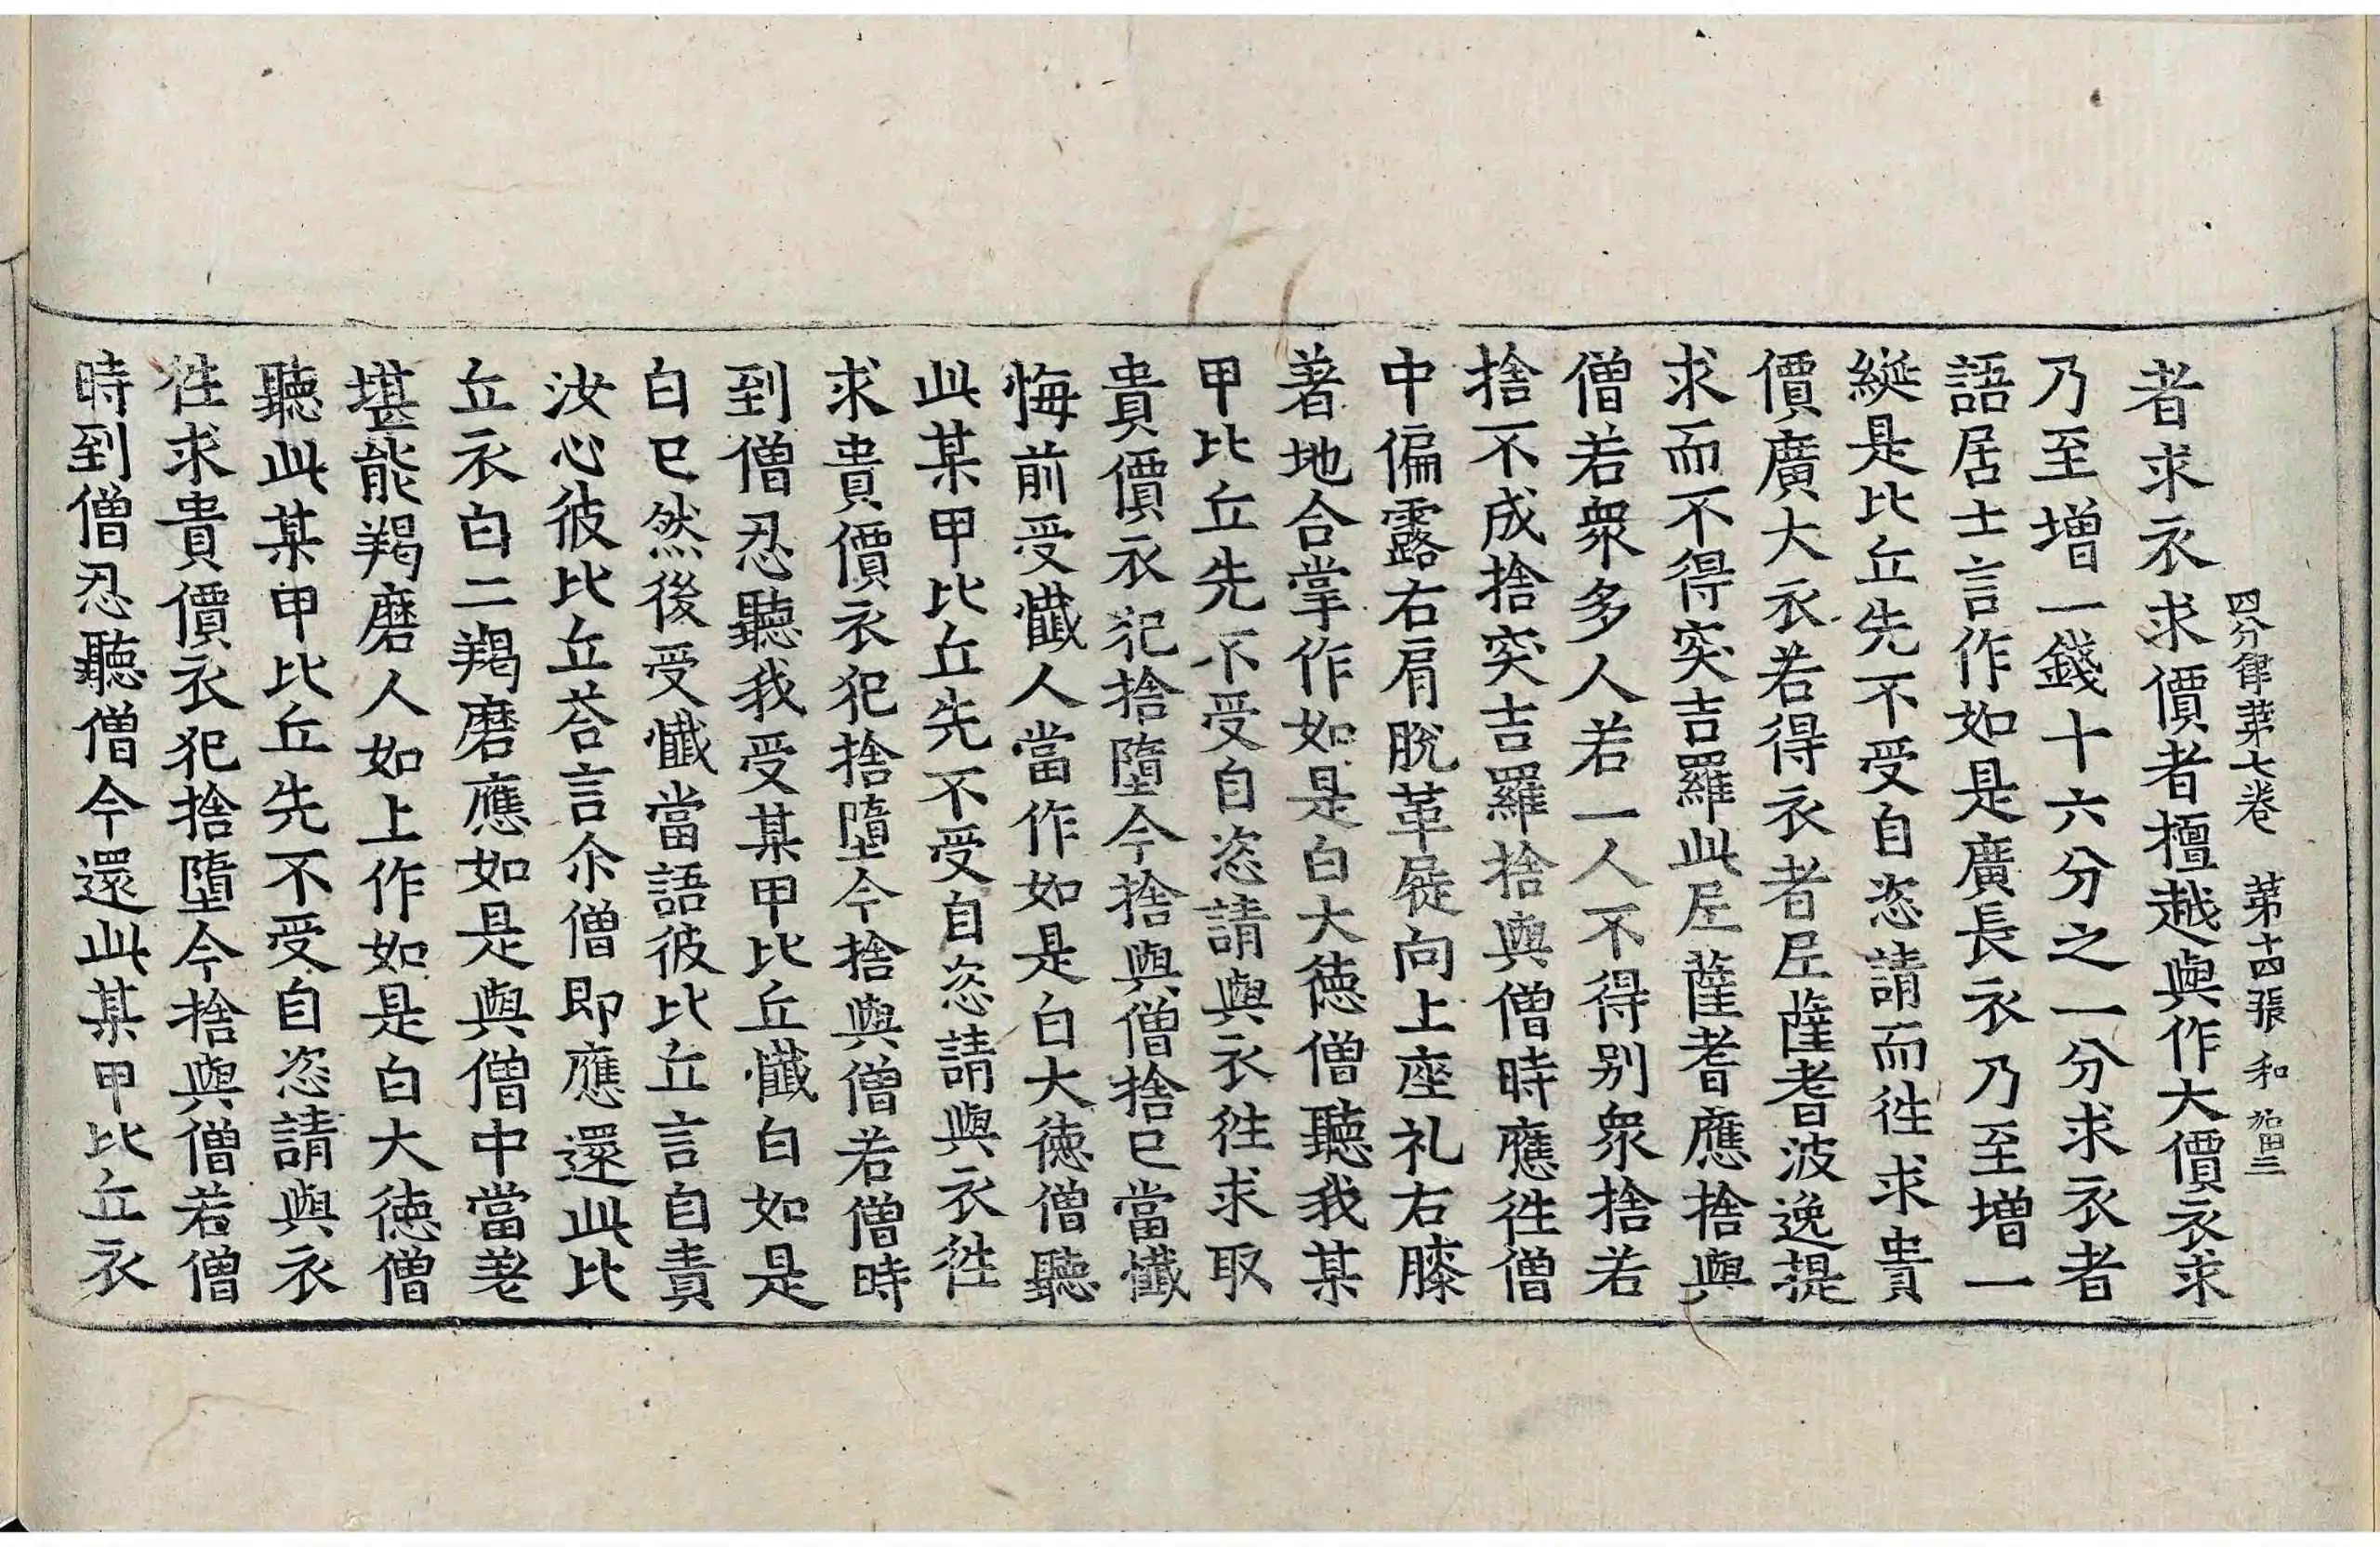 四分律苐七卷　苐十四張　和
者求衣求價者擅越與作大價衣求
乃至增一錢十六分之一分求衣者
語居士言作如是廣長衣乃至增一
綖是比丘先不受自恣請而徃求貴
價廣大衣若得衣者𡰱薩耆波逸提
求而不得突吉羅此𡰱薩耆應捨與
僧若衆多人若一人不得別衆捨若
捨不成捨突吉羅捨與僧時應徃僧
中偏露右肩脫革屣向上座礼右膝
著地合掌作如是白大德僧聽我某
甲比丘先不受自恣請與衣徃求取
貴價衣犯捨墮今捨與僧捨已當懺
悔前受懺人當作如是白大德僧聽
此某甲比丘先不受自恣請與衣徃
求貴價衣犯捨墮今捨與僧若僧時
到僧忍聽我受某甲比丘懺白如是
白已然後受懺當語彼比丘言自責
汝心彼比丘荅言尒僧即應還此比
丘衣白二羯磨應如是與僧中當差
堪能羯磨人如上作如是白大德僧
聽此某甲比丘先不受自恣請與衣
徃求貴價衣犯捨墮今捨與僧若僧
時到僧忍聽僧今還此某甲比丘衣